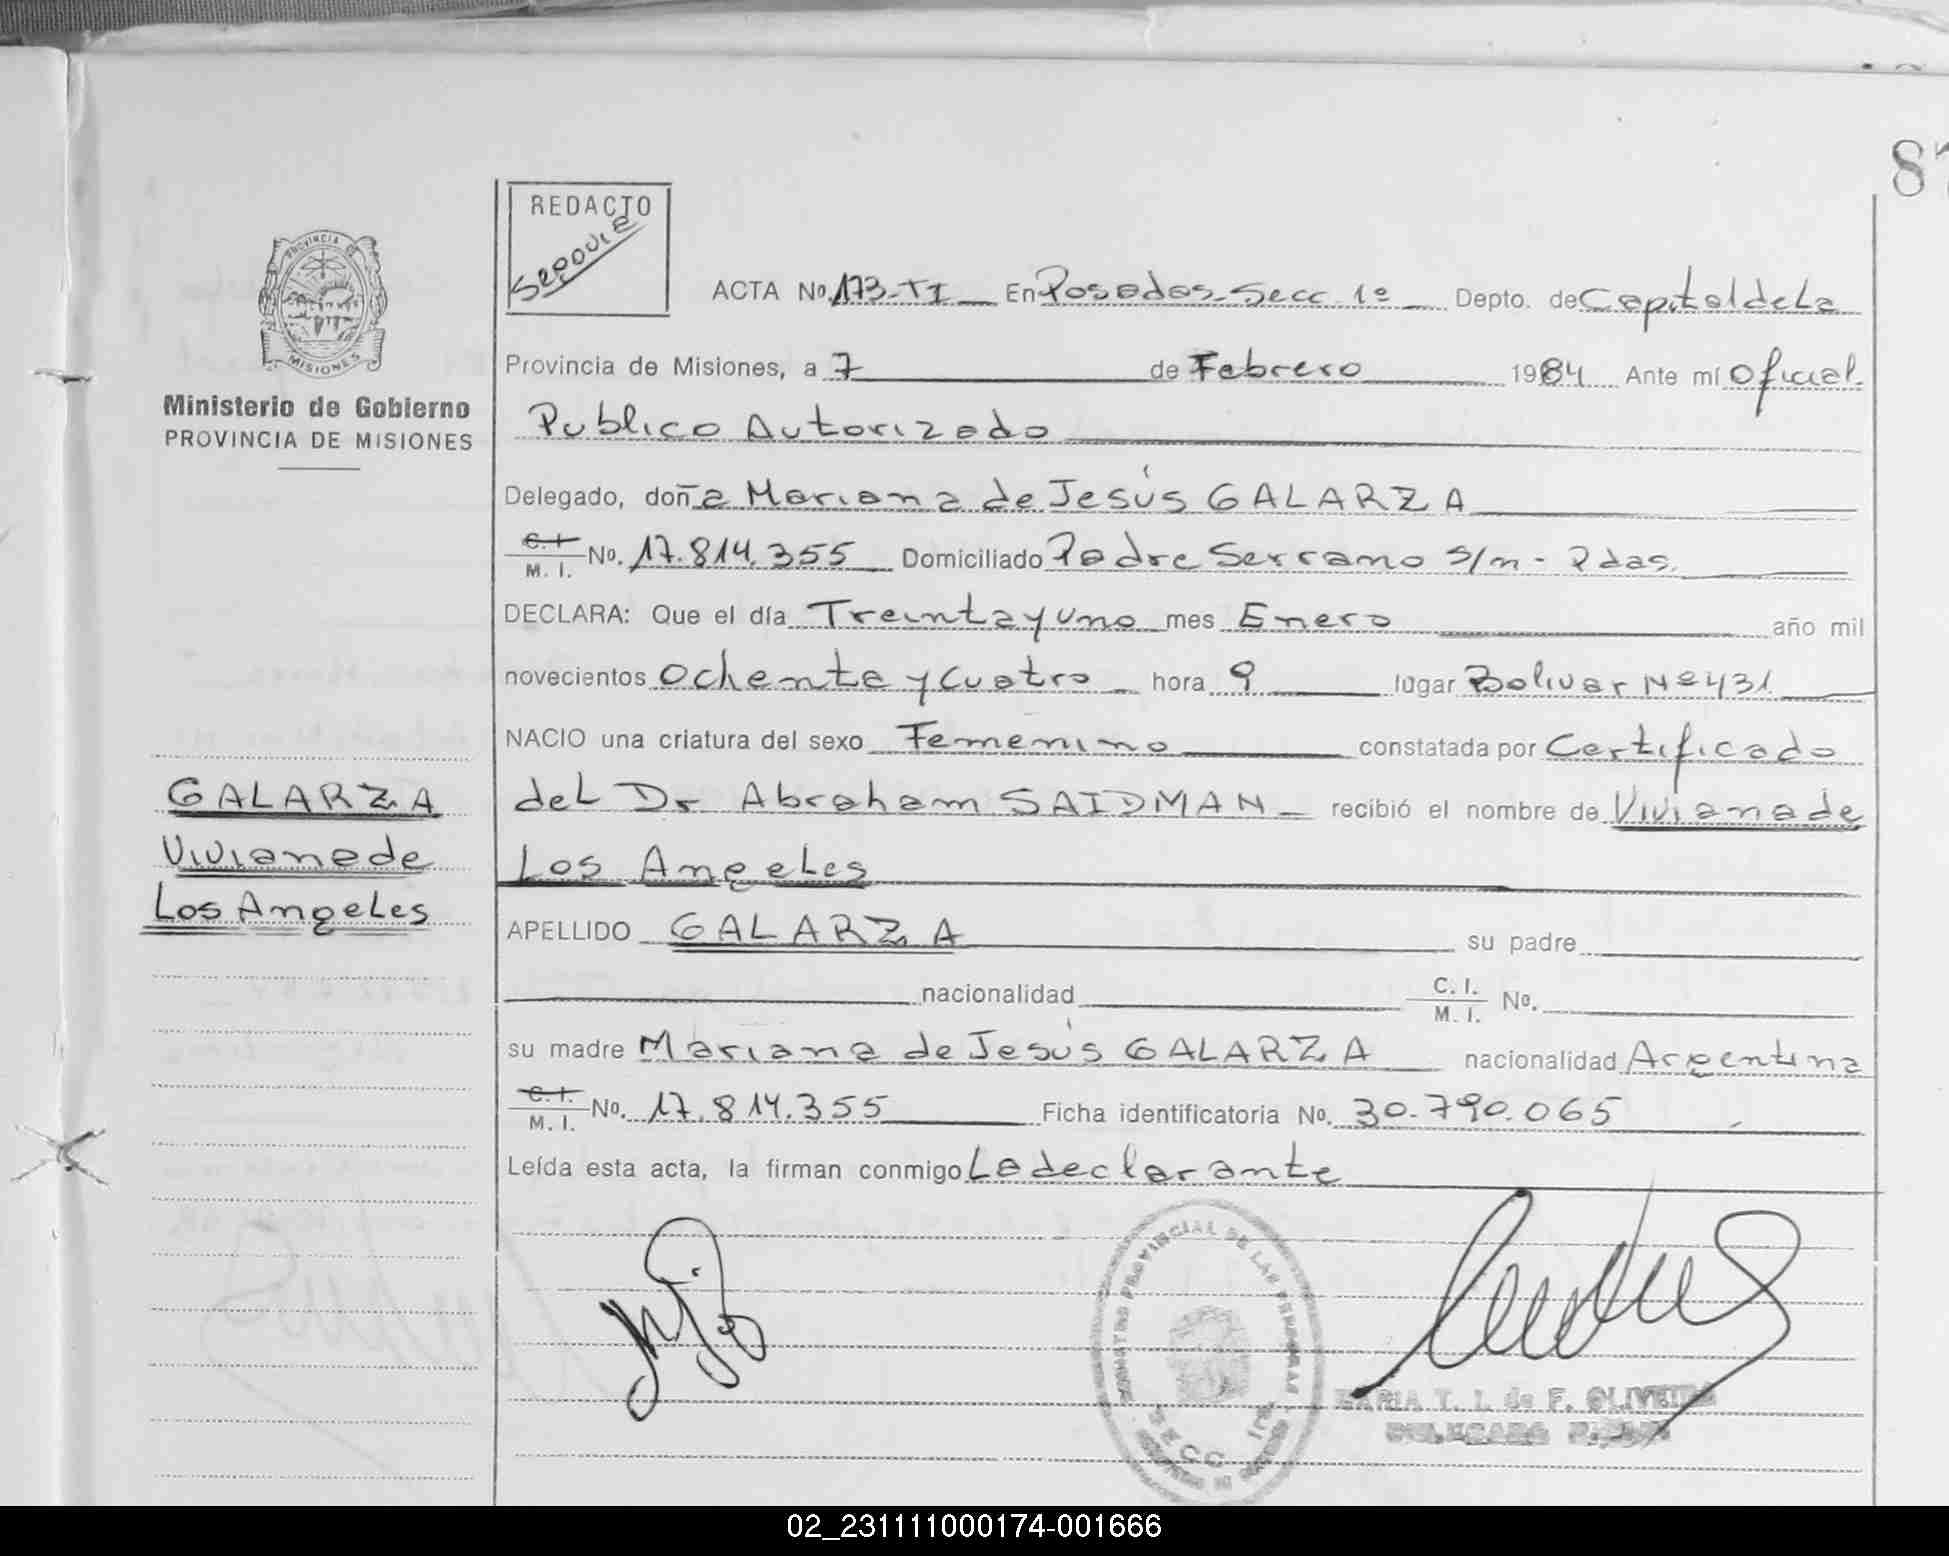 87
REDACTO
PROVINCIA DE
MISIONES
Ministerio de Gobierno
PROVINCIA DE MISIONES
ACTA Nº 173-TI En Posadas-Secc 1º Depto. de Capital de La
Provincia de Misiones, a 7 de Febrero 1984 Ante mí Oficial
Publico Autorizado
Delegado, doña Mariana de Jesús GALARZA
C.I. M. I. Nº. 17.814.355 Domiciliado Padre Serrano S/n - Pdas.
DECLARA: Que el día Treinta y uno mes Enero año mil
novecientos Ochenta y Cuatro hora 9 lugar Bolivar Nº 431
NACIO una criatura del sexo Femenino constatada por Certificado
GALARZA
Viviana de
Los Angeles
del Dr Abraham SAIDMAN recibió el nombre de Viviana de
Los Angeles
APELLIDO GALARZA su padre
nacionalidad C. I. M. I. Nº.
su madre Mariana de Jesús GALARZA nacionalidad Argentina
C. I. M. I. Nº. 17.814.355 Ficha identificatoria Nº. 30.790.065
Leída esta acta, la firman conmigo La declarante
PROVINCIAL DE LAS PERSONAS
SECC 1ra
MARIA T. I. de F. OLIVEIRA
02_231111000174-001666